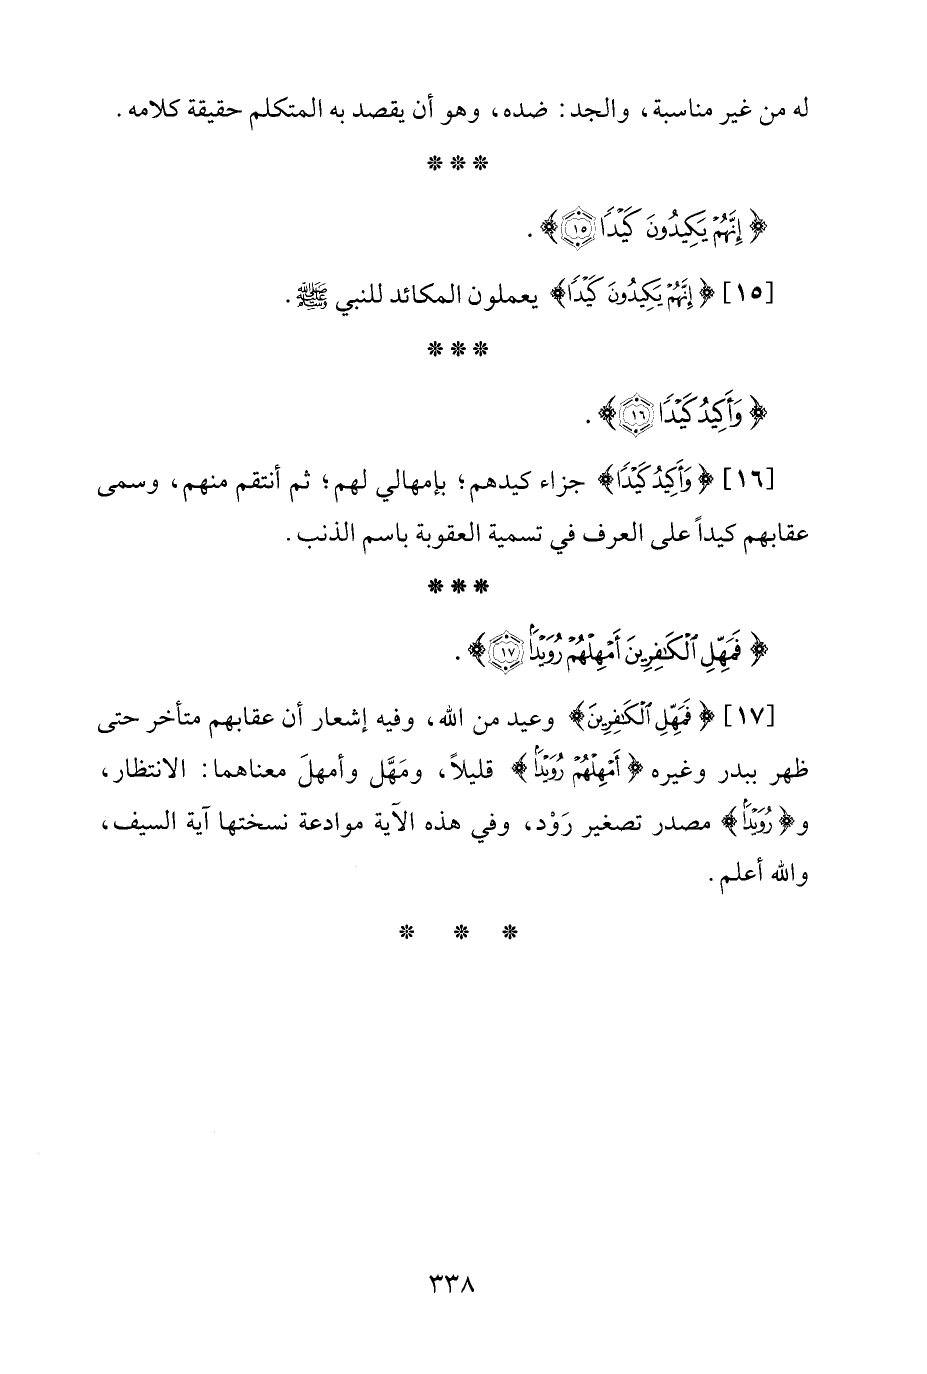 له من غير مناسبة، والجد: ضده، وهو أن يقصد به المتكلم حقيقة كلامه.
* * *
﴿إِنَّهُمْ يَكِيدُونَ كَيْدًا ١٥﴾.
[١٥] ﴿إِنَّهُمْ يَكِيدُونَ كَيْدًا﴾ يعملون المكائد للنبي ﷺ.
* * *
﴿وَأَكِيدُ كَيْدًا ١٦﴾.
[١٦] ﴿وَأَكِيدُ كَيْدًا﴾ جزاء كيدهم؛ بإمهالي لهم؛ ثم أنتقم منهم، وسمى
عقابهم كيداً على العرف في تسمية العقوبة باسم الذنب.
* * *
﴿فَمَهِّلِ ٱلْكَـٰفِرِينَ أَمْهِلْهُمْ رُوَيْدَۢا ١٧﴾.
[١٧] ﴿فَمَهِّلِ ٱلْكَـٰفِرِينَ﴾ وعيد من الله، وفيه إشعار أن عقابهم متأخر حتى
ظهر ببدر وغيره ﴿أَمْهِلْهُمْ رُوَيْدَۢا﴾ قليلاً، ومَهَّل وأمهلَ معناهما: الانتظار،
و﴿رُوَيْدَۢا﴾ مصدر تصغير رَوْد، وفي هذه الآية موادعة نسختها آية السيف،
والله أعلم.
* * *
٣٣٨